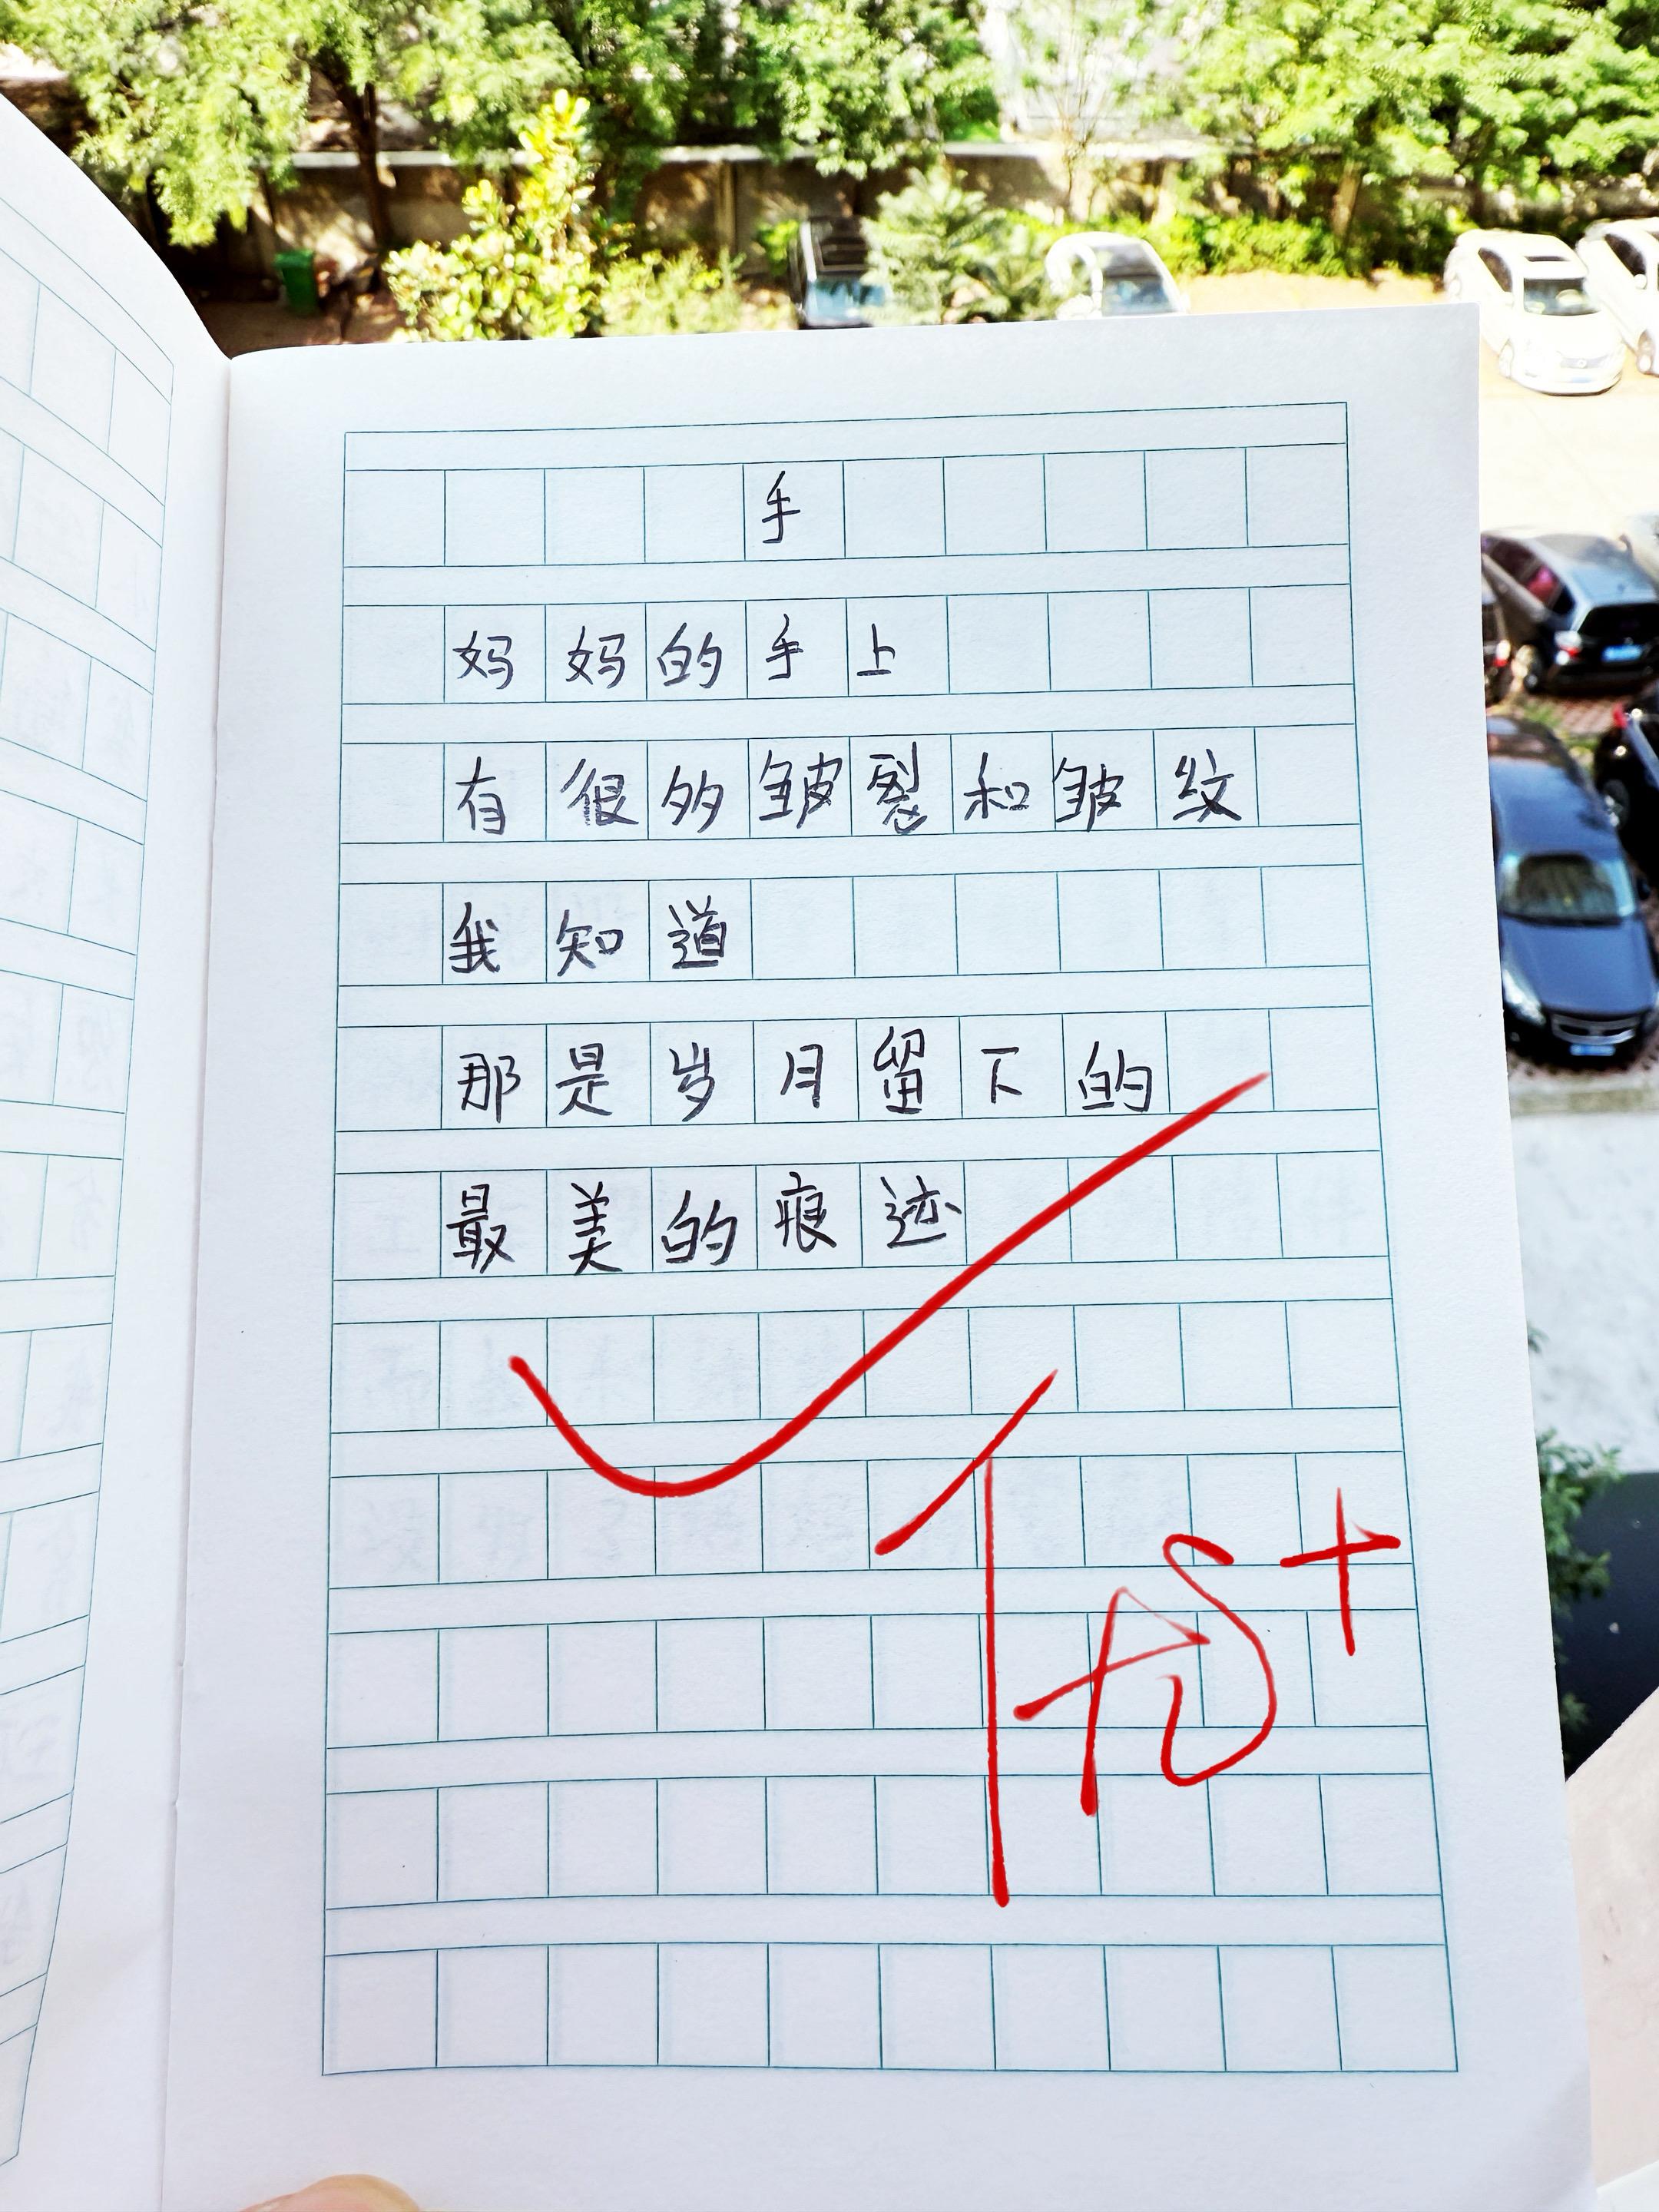 手
妈妈的手上
有很多皱裂和皱纹
我知道
那是岁月留下的
最美的痕迹
优+